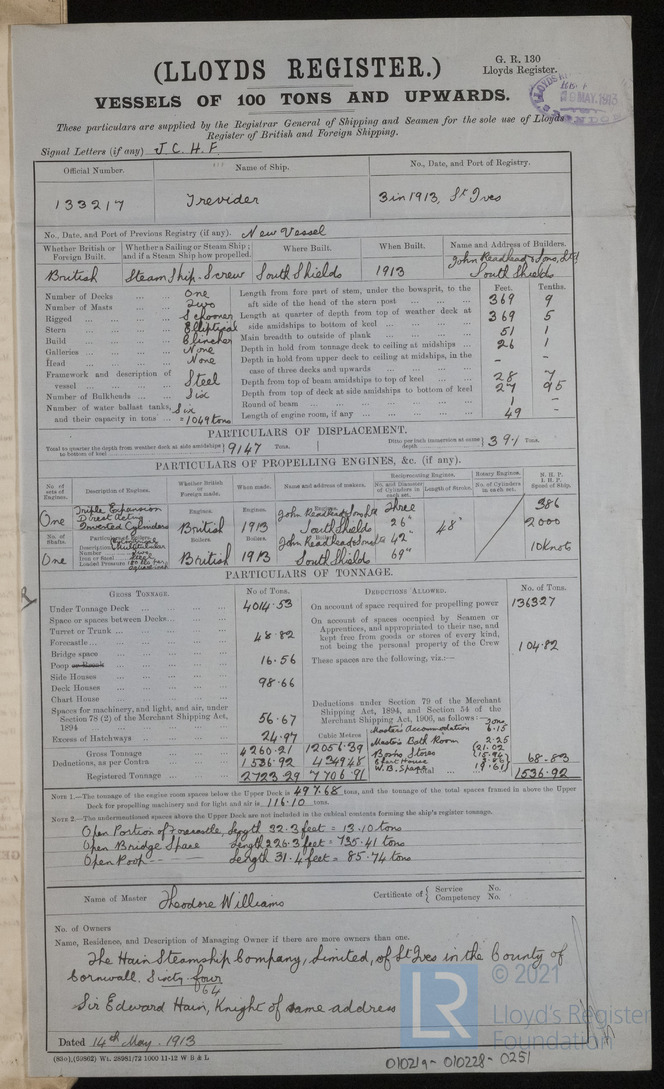 G. R. 130
(LLOYDS REGISTER.) Lloyds Register.
VESSELS OF 100 TONS AND UPWARDS.
MAY. 1913
These particulars are supplied by the Registrar General of Shipping and Seamen for the sole use of Lloyds
Register of British and Foreign Shipping.
Signal Letters (if any) J. C. H. F.
Official Number. Name of Ship. No., Date, and Port of Registry.
133217 Trevider 3 in 1913, St Ives
No., Date, and Port of Previous Registry (if any). New Vessel
Whether British or Foreign Built. Whether a Sailing or Steam Ship; and if a Steam Ship how propelled. Where Built. When Built. Name and Address of Builders.
British Steam Ship. Screw South Shields 1913 John Readhead & Sons, Ltd South Shields
Number of Decks One
Number of Masts Two
Rigged Schooner
Stern Elliptical
Build Clincher
Galleries None
Head None
Framework and description of
vessel Steel
Number of Bulkheads Six
Number of water ballast tanks, Six
and their capacity in tons =1049 tons
Feet. Tenths.
Length from fore part of stem, under the bowsprit, to the
aft side of the head of the stern post 369 9
Length at quarter of depth from top of weather deck at
side amidships to bottom of keel 369 5
Main breadth to outside of plank 51 1
Depth in hold from tonnage deck to ceiling at midships 26 1
Depth in hold from upper deck to ceiling at midships, in the
case of three decks and upwards - -
Depth from top of beam amidships to top of keel 28 7
Depth from top of deck at side amidships to bottom of keel 27 95
Round of beam 1 -
Length of engine room, if any 49 -
PARTICULARS OF DISPLACEMENT.
Total to quarter the depth from weather deck at side amidships to bottom of keel 9147 Tons. Ditto per inch immersion at same depth 39.1 Tons.
PARTICULARS OF PROPELLING ENGINES, &c. (if any).
No. of sets of Engines. Description of Engines. Whether British or Foreign made. When made. Name and address of makers. Reciprocating Engines. No. and Diameter of Cylinders in each set. Length of Stroke. Rotary Engines. No. of Cylinders in each set. N. H. P. I. H. P. Speed of Ship.
One Triple Expansion Direct Acting Inverted Cylinders Engines. British Engines. 1913 Engines. John Readhead & Sons Ltd South Shields Three 26" 42" 69" 48" 386 2000 10 Knots
No. of Shafts. Particulars of Boilers. Boilers. Boilers. Boilers.
One Description Multitubular Number Iron or Steel Steel Loaded Pressure 180 lbs per square inch British 1913 John Readhead & Sons Ltd South Shields
PARTICULARS OF TONNAGE.
GROSS TONNAGE. No. of Tons.
Under Tonnage Deck 4014.53
Space or spaces between Decks
Turret or Trunk
Forecastle 48.82
Bridge space
Poop or Break 16.56
Side Houses
Deck Houses 98.66
Chart House
Spaces for machinery, and light, and air, under
Section 78 (2) of the Merchant Shipping Act,
1894 56.67
Excess of Hatchways 24.97 Cubic Metres
Gross Tonnage 4260.21 12056.39
Deductions, as per Contra 1536.92 4349.48
Registered Tonnage 2723.29 7706.91
DEDUCTIONS ALLOWED. No. of Tons.
On account of space required for propelling power 1363.27
On account of spaces occupied by Seamen or
Apprentices, and appropriated to their use, and
kept free from goods or stores of every kind,
not being the personal property of the Crew 104.82
These spaces are the following, viz.:—
Deductions under Section 79 of the Merchant
Shipping Act, 1894, and Section 54 of the
Merchant Shipping Act, 1906, as follows:— Tons
Master's Accommodation 6.15
Master's Bath Room 2.25
Bosns Stores 21.02
15.94
Chart House 3.86
W. B. Space 19.61
Total 68.83
1536.92
NOTE 1.—The tonnage of the engine room spaces below the Upper Deck is 497.68 tons, and the tonnage of the total spaces framed in above the Upper
Deck for propelling machinery and for light and air is 116.10 tons.
NOTE 2.—The undermentioned spaces above the Upper Deck are not included in the cubical contents forming the ship's register tonnage.
Open Portion of Forecastle, length 32.3 feet = 13.10 tons
Open Bridge Space length 226.3 feet = 735.41 tons
Open Poop length 31.4 feet = 85.74 tons
Name of Master Theodore Williams Certificate of { Service No. Competency No.
No. of Owners
Name, Residence, and Description of Managing Owner if there are more owners than one.
The Hain Steamship Company, Limited, of St Ives in the County of
Cornwall. Sixty four
64
Sir Edward Hain, Knight of same address
Dated 14th May. 1913
(830),(59862) Wt. 28981/72 1000 11-12 W B & L
010219-010228-0251
LR © 2021
Lloyd's Register
Foundation